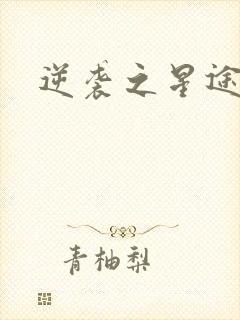 逆袭之星途
青柚梨